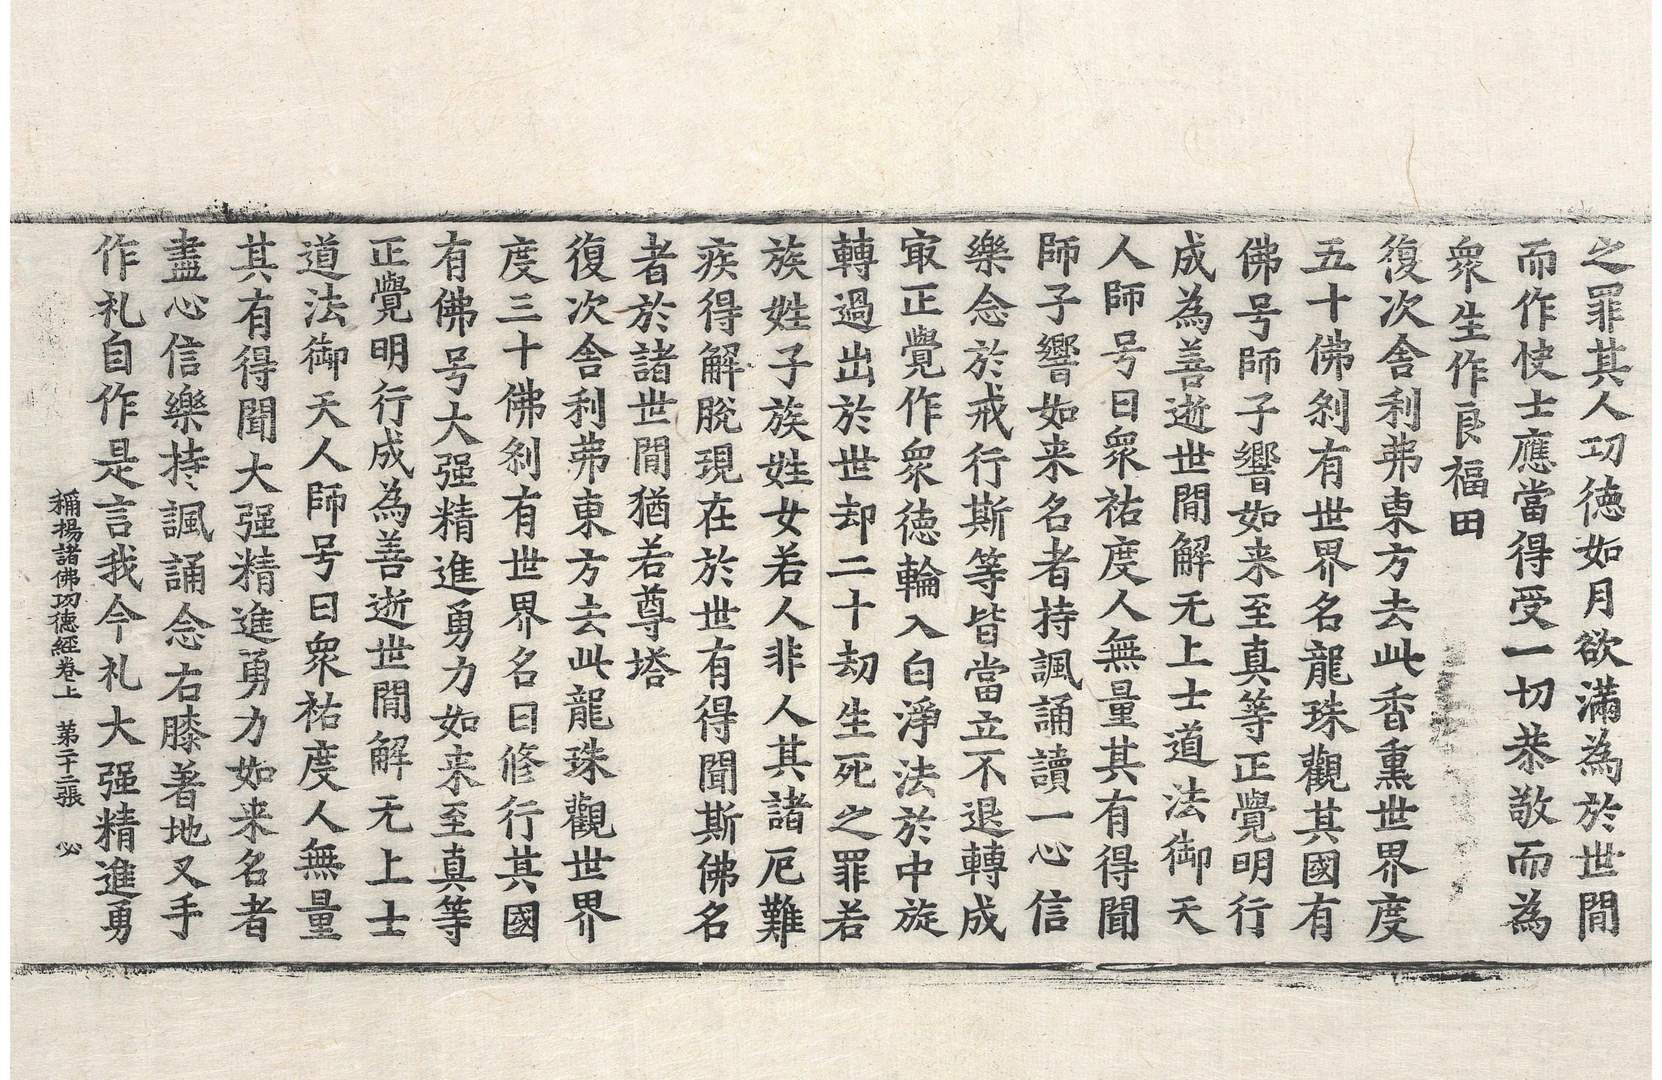 之罪其人功德如月欲滿為於世間
而作使士應當得受一切恭敬而為
衆生作良福田
復次舍利弗東方去此香熏世界度
五十佛刹有世界名龍珠觀其國有
佛号師子響如来至真等正覺明行
成為善逝世間解无上士道法御天
人師号曰衆祐度人無量其有得聞
師子響如来名者持諷誦讀一心信
樂念於戒行斯等皆當立不退轉成
㝡正覺作衆德輪入白淨法於中旋
轉過出於世却二十劫生死之罪若
族姓子族姓女若人非人其諸厄難
疾得解脫現在於世有得聞斯佛名
者於諸世間猶若尊塔
復次舍利弗東方去此龍珠觀世界
度三十佛刹有世界名曰修行其國
有佛号大强精進勇力如来至真等
正覺明行成為善逝世間解无上士
道法御天人師号曰衆祐度人無量
其有得聞大强精進勇力如来名者
盡心信樂持諷誦念右膝著地叉手
作礼自作是言我今礼大强精進勇
稱揚諸佛功德經卷上 第二十二張 必